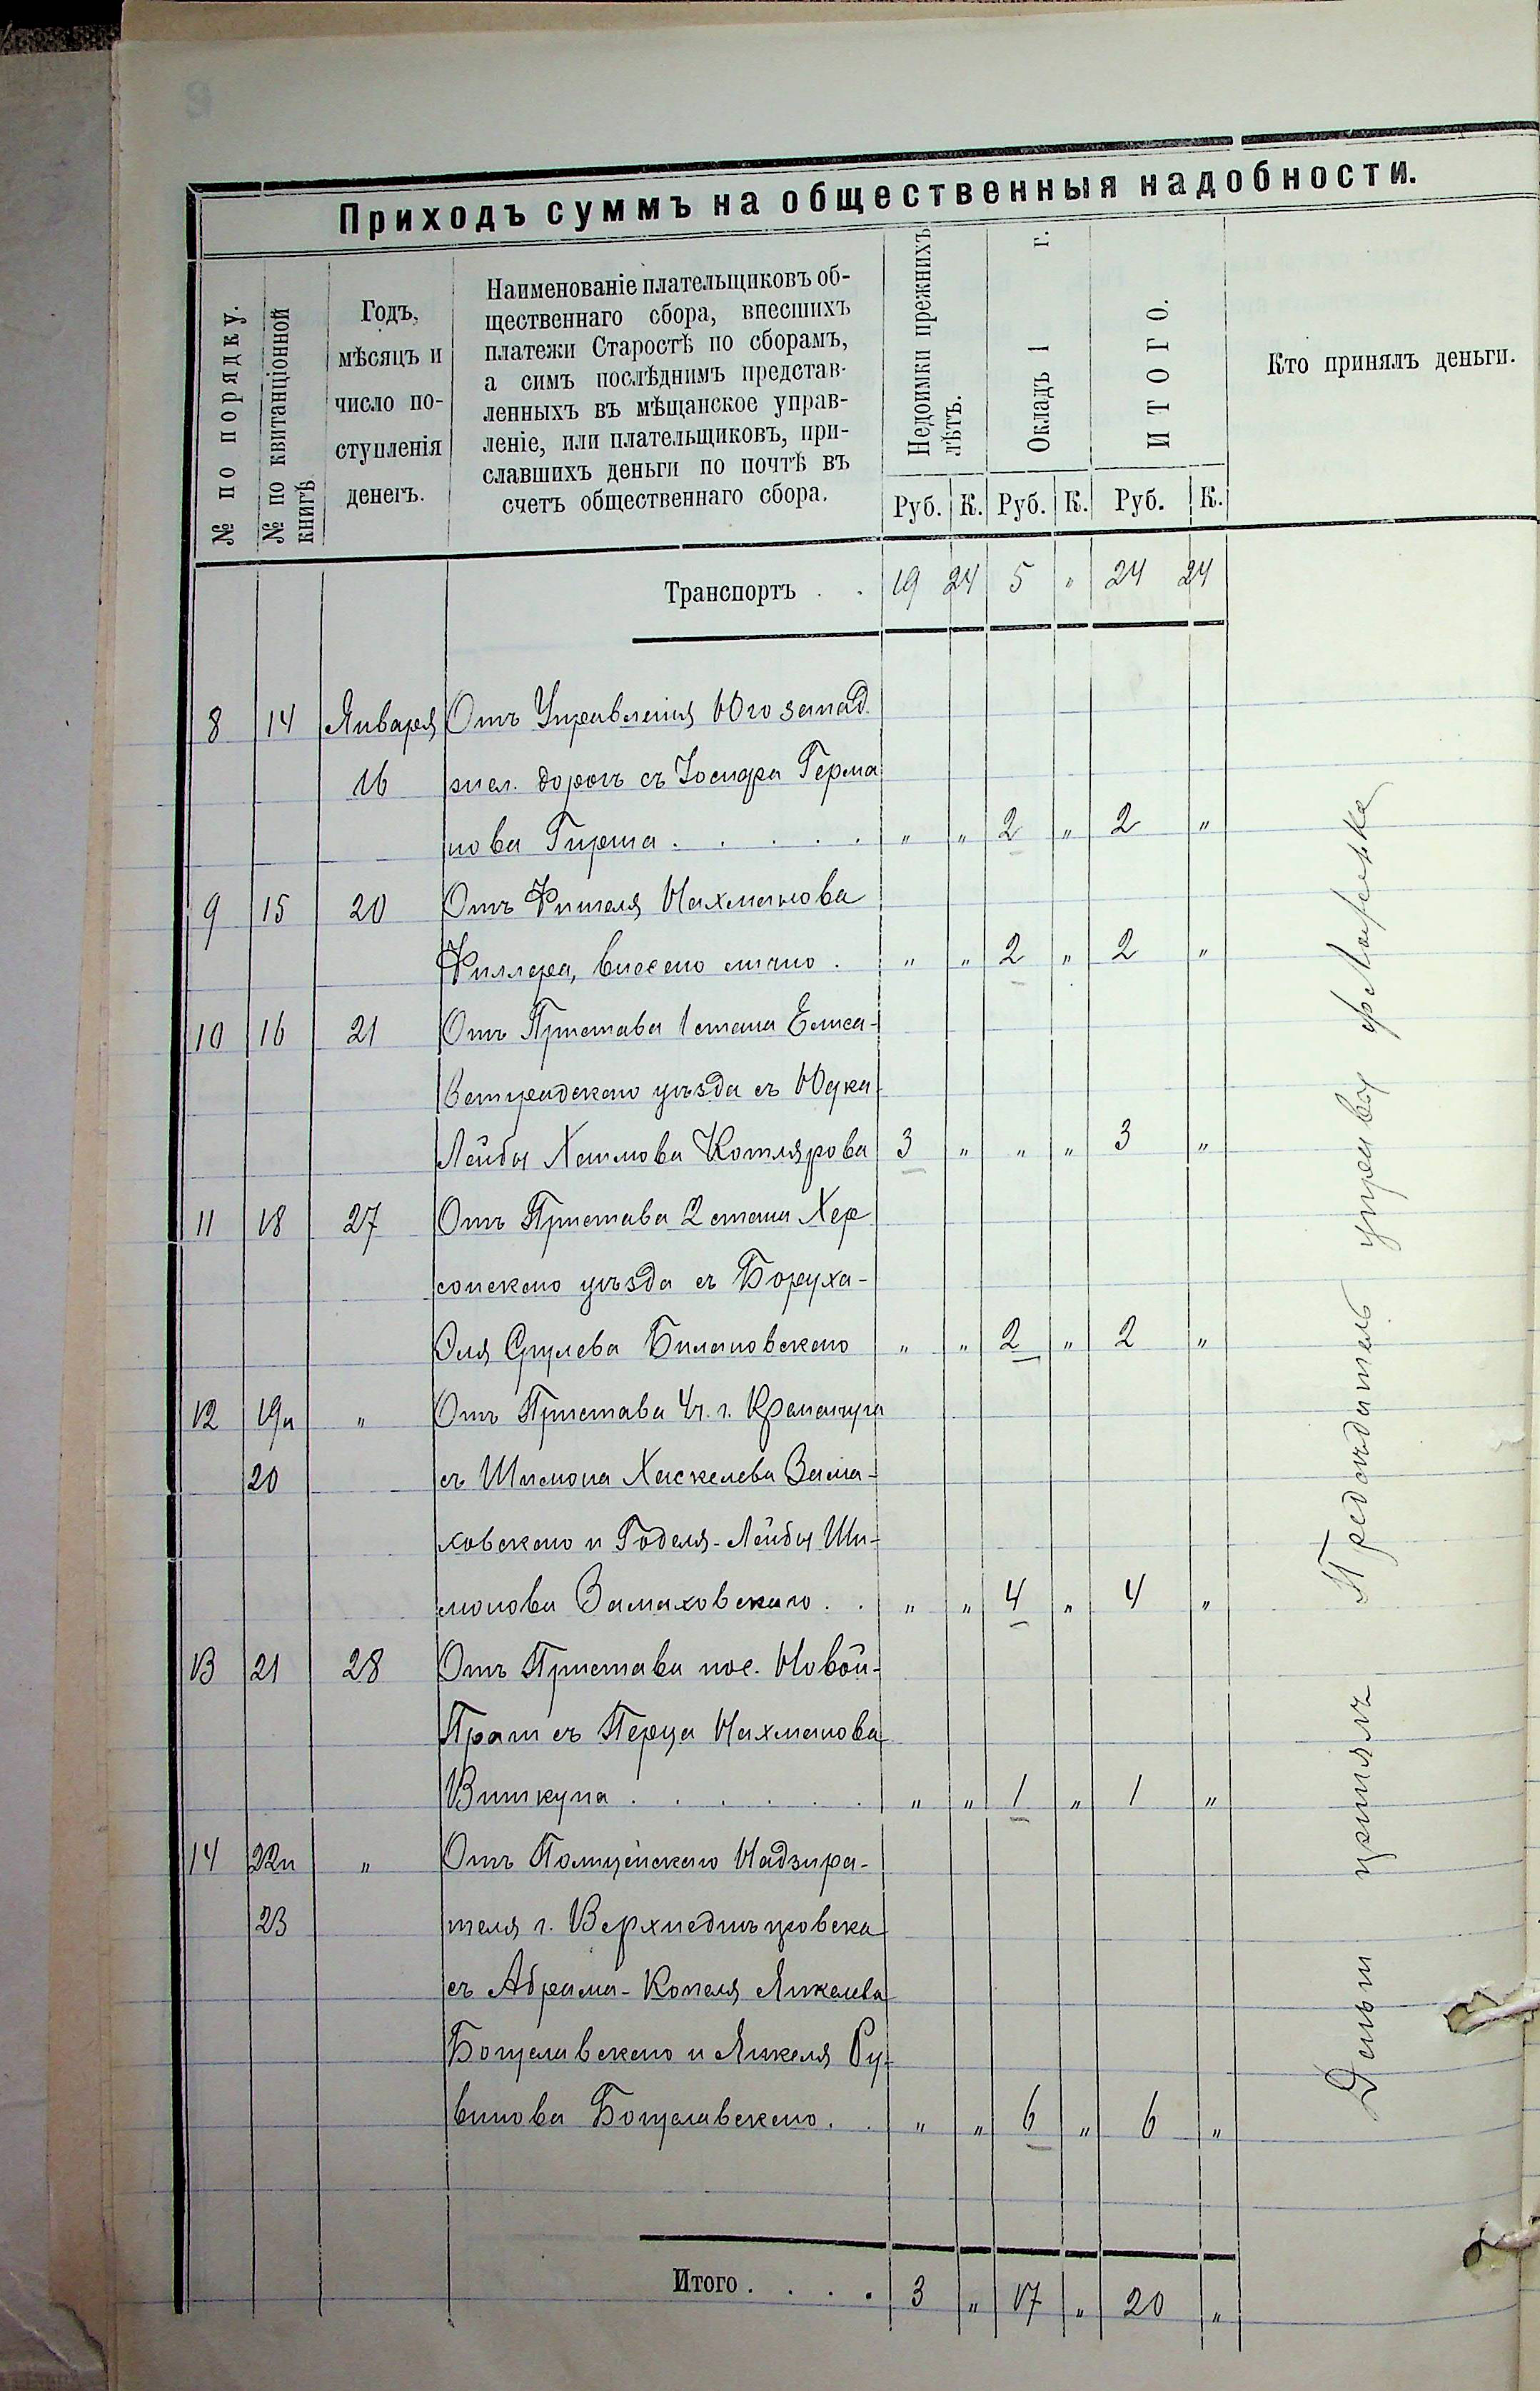 Приходъ суммъ на общественныя надобности.
№ по порядку.
№ по квитанціонной
книгѣ
Годъ,
мѣсяцъ и
число по-
ступленія
денегъ.
Наименованіе плательщиковъ об-
щественнаго сбора, внесшихъ
платежи Старостѣ по сборамъ,
а симъ послѣднимъ представ-
ленныхъ въ мѣщанское управ-
леніе, или плательщиковъ, при-
славшихъ деньги по почтѣ въ
счетъ общественнаго сбора.
Недоимки прежнихъ
лѣтъ.
Окладъ 1 г.
ИТОГО.
Кто принялъ деньги.
Руб. К. Руб. К. Руб. К.
Транспортъ . . 19 24 5 " 24 24
8 14 Января Отъ Управленія Югозапад
16 жел. дорогъ съ Іосифа Герма
нова Гирша . . . . . " " 2 " 2 "
9 15 20 Отъ Фишеля Нахманова
Филлера, внесено лично . " " 2 " 2 "
10 16 21 Отъ Пристава 1 стана Елиса-
ветградскаго уѣзда съ Юдка-
Лейбы Хаимова Котлярова 3 " " " 3 "
11 18 27 Отъ Пристава 2 стана Хер
сонскаго уѣзда съ Боруха-
Эля Срулева Билановскаго " " 2 " 2 "
12 19 и " Отъ Пристава 4 ч. г. Кременчуга
20 съ Шимона Хаскелева Зама-
ховскаго и Годеля-Лейбы Ши-
монова Замаховскаго . . " " 4 " 4 "
13 21 28 Отъ Пристава пос. Новой-
Праги съ Перца Нахманова
Виткупа . . . . . . " " 1 " 1 "
14 22 и " Отъ Полицейскаго Надзира-
23 теля г. Верхнеднѣпровска
съ Абрама-Копеля Янкелева
Богуславскаго и Янкеля Ру-
винова Богуславскаго . . " " 6 " 6 "
Итого . . . . 3 " 17 " 20 "
Деньги принялъ Предсѣдатель управы